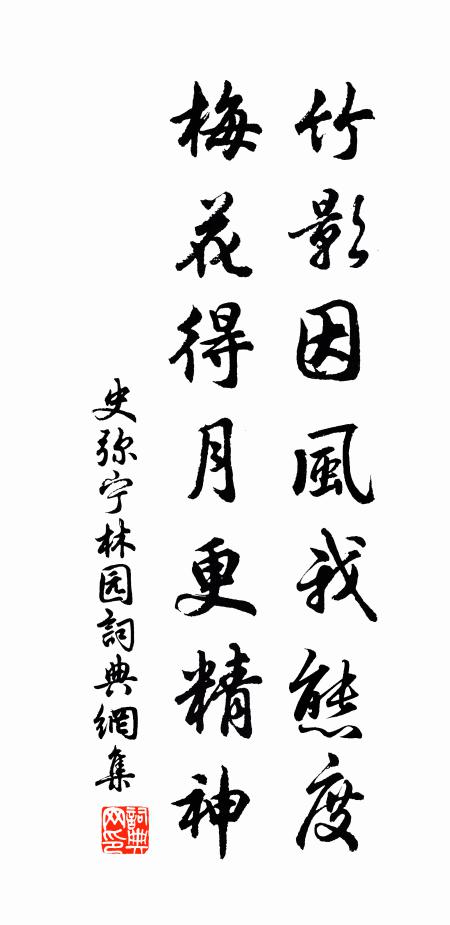 竹影因風我態度
梅花得月更精神
史弥宁林园詞典網集
詞典网印